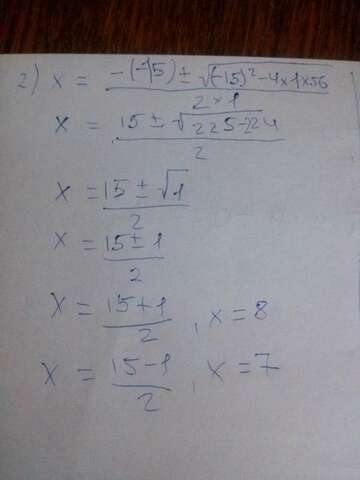 2) x = (-(-15) ± √((-15)² - 4×1×56)) / (2×1)
x = (15 ± √(225-224)) / 2
x = (15 ± √1) / 2
x = (15 ± 1) / 2
x = (15+1) / 2 , x = 8
x = (15-1) / 2 , x = 7